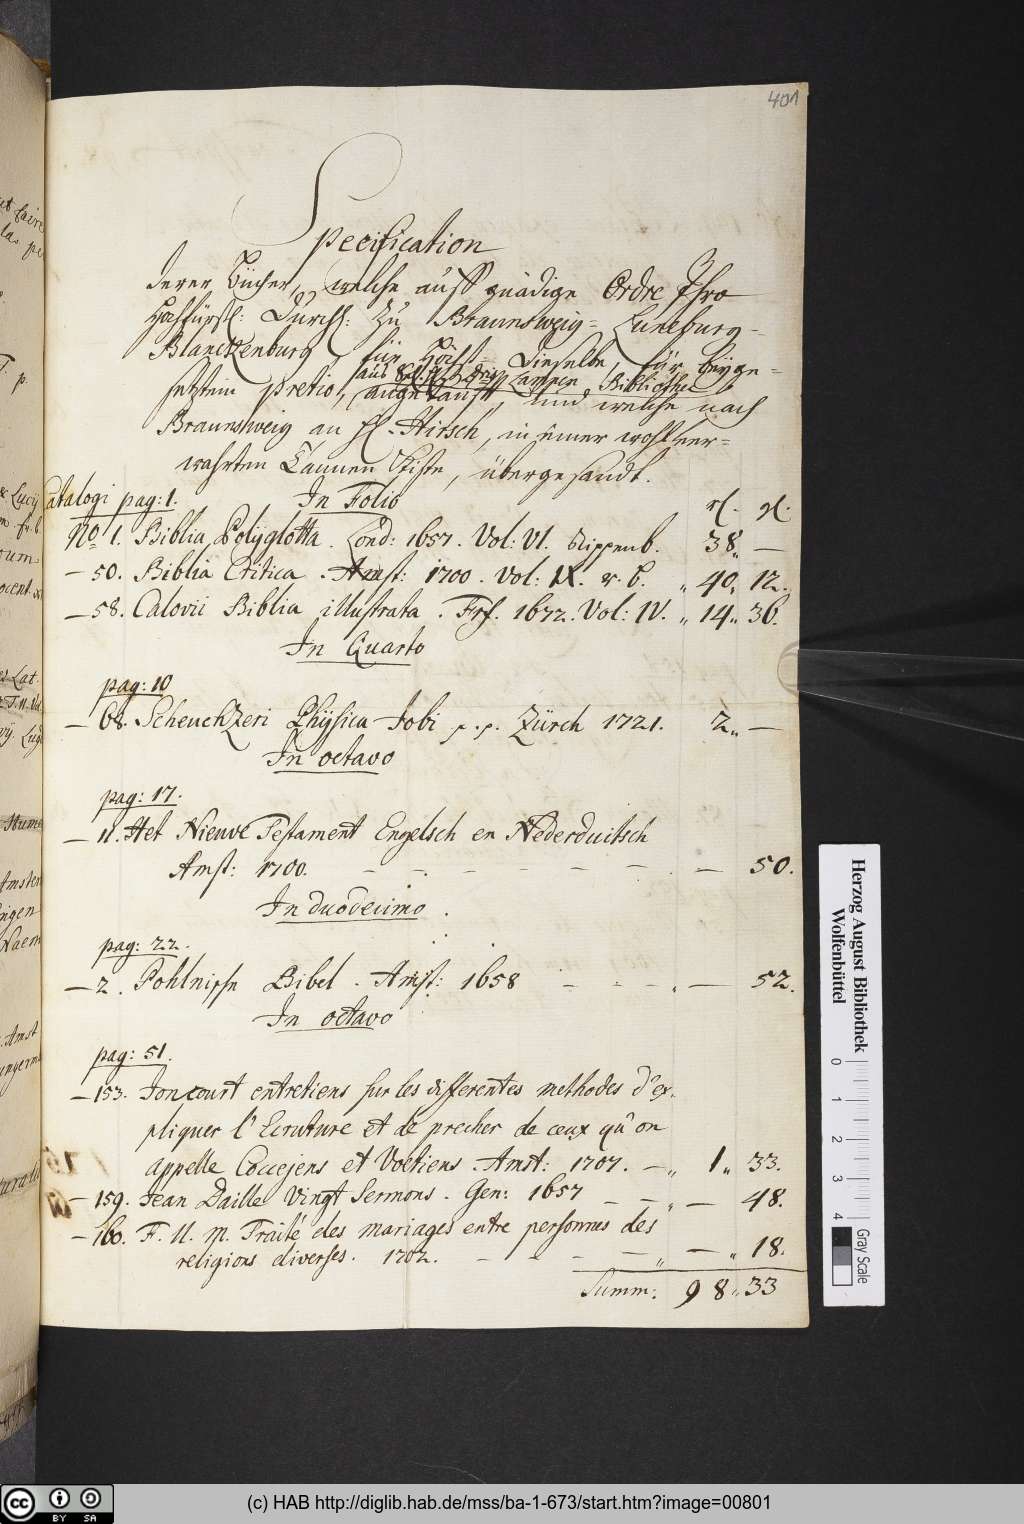 401
Specification
derer Bücher, welche auff gnädige Ordre Ihro
Hochfürstl: Durchl: zu Braunsweig-Luneburg-
Blanckenburg für Höchst-Dieselbe, für beyge-
aus Lampen Bibliothec
setztem pretio, angekaufft, und welche nach
Braunsweig an H. Hirsch, in einer wohl ver-
wahrten Tannen Kiste, übergesandt.
Catalogi pag: 1. In Folio rl. gl.
No 1. Biblia Polyglotta. Lond: 1657. Vol: VI. 38 „ —
— 50. Biblia Critica. Amst: 1700. Vol: IX. „ 40 „ 12.
— 58. Calovii Biblia illustrata. Frf. 1672. Vol: IV. „ 14 „ 36.
In Quarto
pag: 10
— 68. Scheuchzeri Physica Jobi p. p. Zürch 1721. 2 „ —
In octavo
pag: 17.
— 11. Het Nieuwe Testament Engelsch en Nederduitsch
Amst: 1700. — — — — — — — 50.
In duodecimo.
pag: 22.
— 2. Pohlnische Bibel. Amst: 1658 — — — „ — 52.
In octavo
pag: 51.
— 153. Joncourt entretiens sur les differentes methodes d'ex-
pliquer l'Ecruture et de precher de ceux qu'on
appelle Coccejens et Voetiens. Amst: 1707. — „ 1 „ 33.
— 159. Jean Daille Vingt Sermons. Gen: 1657 — — „ — 48.
— 160. F. U. M. Traité des mariages entre personnes des
religions diverses. 1702. — — — — „ — „ 18.
Summ: 98 „ 33
Herzog August Bibliothek
Wolfenbüttel
0 1 2 3 4
Gray Scale
cc BY SA
(c) HAB http://diglib.hab.de/mss/ba-1-673/start.htm?image=00801